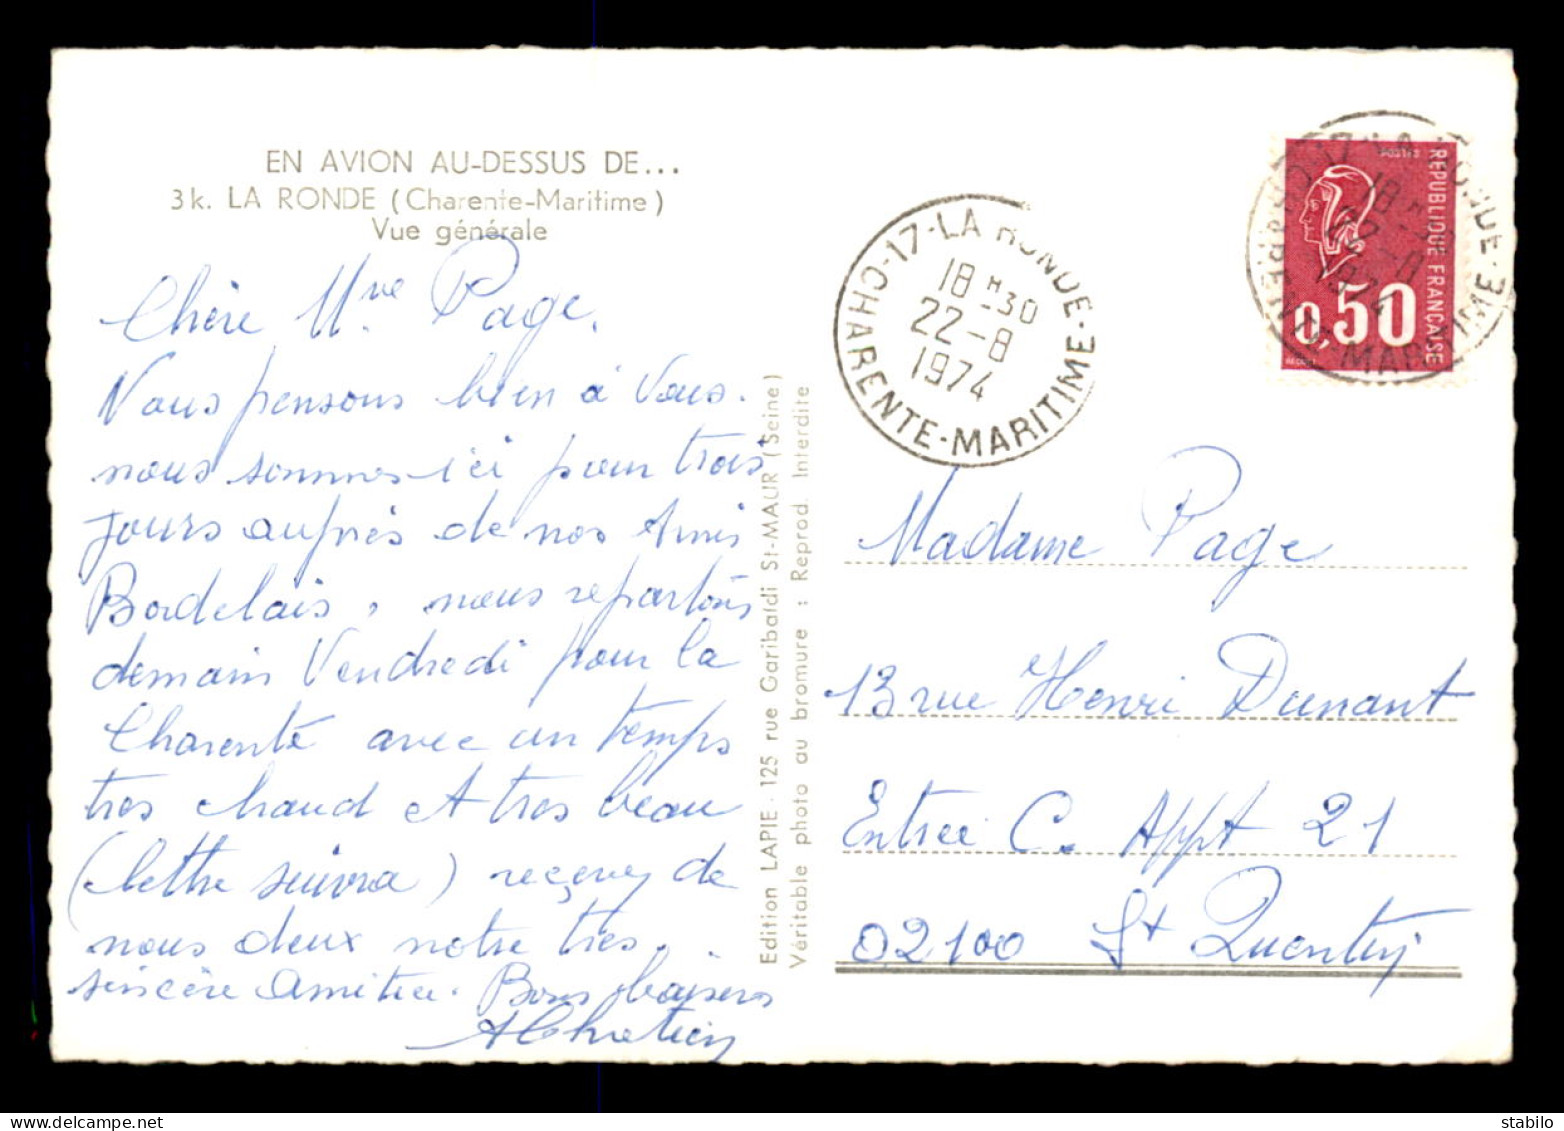 EN AVION AU-DESSUS DE...
3k. LA RONDE (Charente-Maritime)
Vue générale
Chère Mme Page.
Nous pensons bien à Vous.
nous sommes ici pour trois
jours auprès de nos Amis
Bordelais, nous repartons
demain Vendredi pour la
Charente avec un temps
très chaud et très beau
(lettre suivra) recevez de
nous deux notre très
sincère Amitiée. Bons baisers
Edition LAPIE. 125 rue Garibaldi St-MAUR (Seine)
Véritable photo au bromure : Reprod. Interdite
17-LA RONDE-
CHARENTE-MARITIME
18H30
22-8
1974
POSTES
REPUBLIQUE FRANÇAISE
0,50
17-LA RONDE-
CHARENTE-MARITIME
18H30
22-8
1974
Madame Page
13 rue Henri Dunant
Entrée C. Appt 21
02100 St Quentin
stabilo